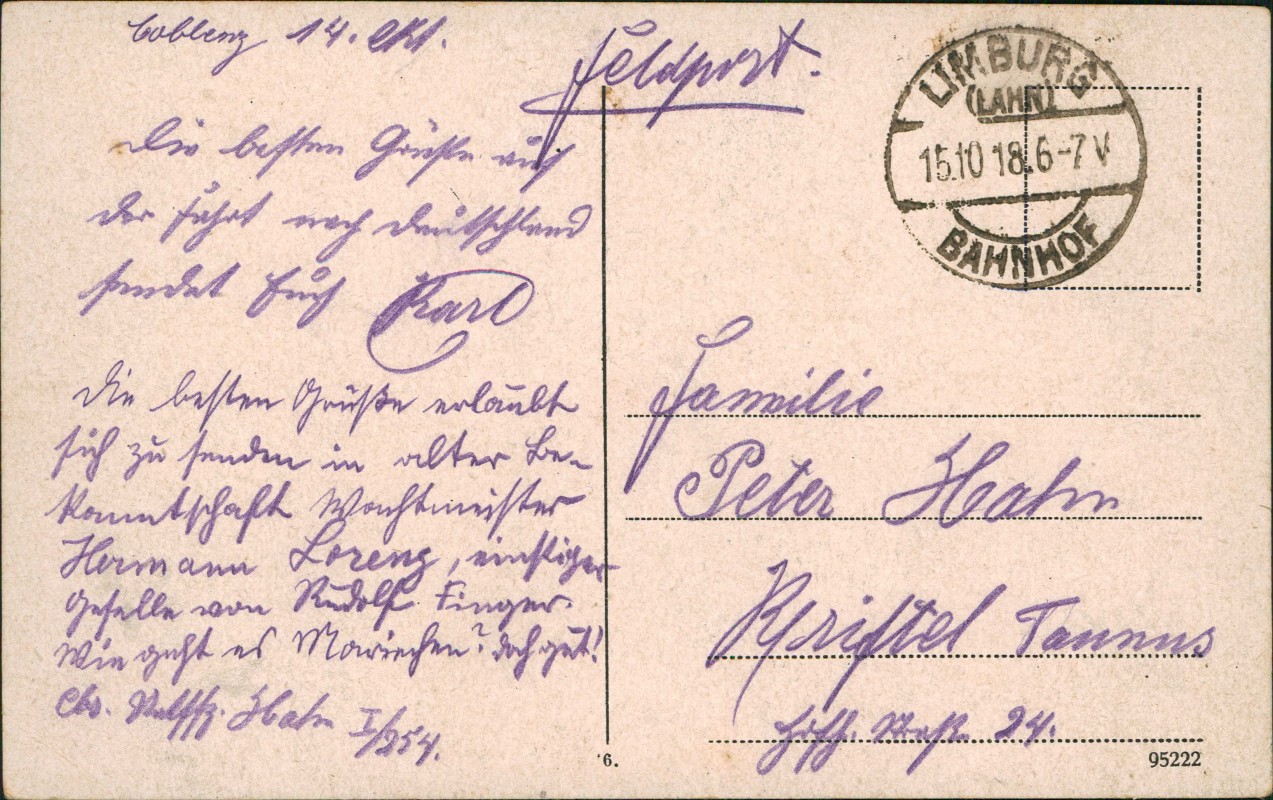 Coblenz 14. Okt.
Feldpost.
Die besten Grüße auf
der Fahrt nach Deutschland
sendet Euch Karl
Die besten Grüße erlaubt
sich zu senden in alter Be-
kanntschaft Wachtmeister
Hermann Lorenz, einstiger
Geselle von Rudolf Finger.
Wie geht es Mariechen? doch gut!
Hahn I/254.
LIMBURG
(LAHN)
15.10 18.6-7 V
BAHNHOF
Familie
Peter Hahn
Kriftel Taunus
24.
6.
95222